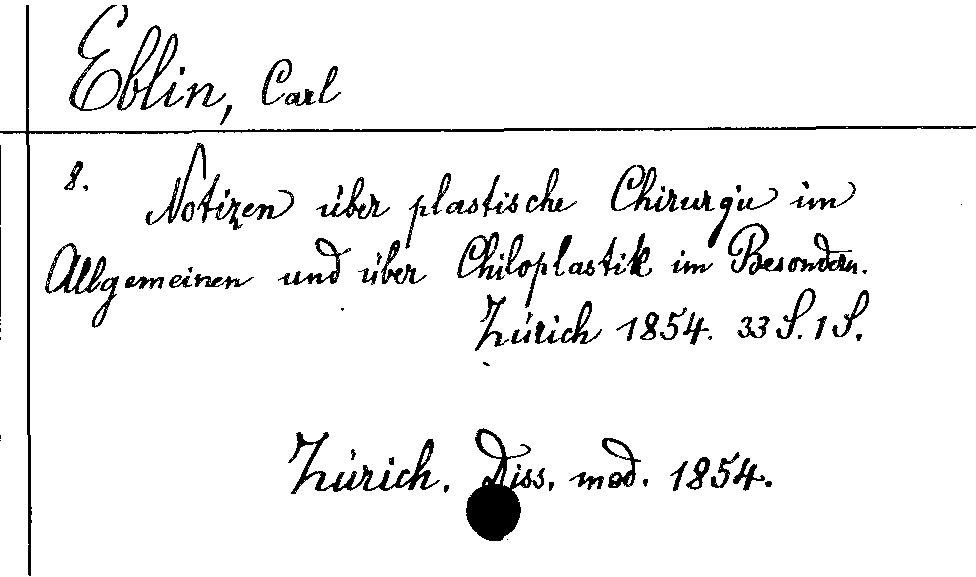 Eblin, Carl
8. Notizen über plastische Chirurgie im
Allgemeinen und über Chiloplastik im Besondern.
Zürich 1854. 33 S. 1 S.
Zürich. Diss. med. 1854.